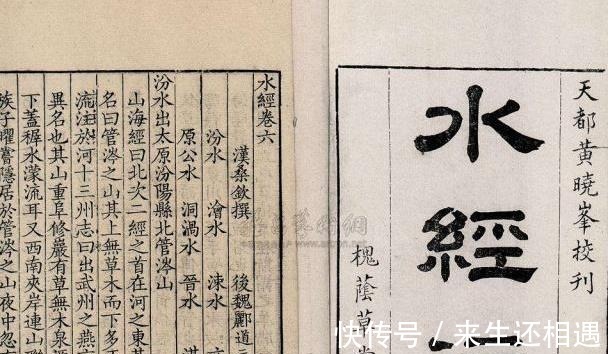 天都黃曉峯挍刊
水經
槐蔭草
水經卷六
漢桑欽撰 後魏酈道
汾水 澮水 涑水
原公水 洞渦水 晉水
汾水出太原汾陽縣北管涔山
山海經曰北次二經之首在河之東其
名曰管涔之山其上無草木而下多
流注於河十三州志曰出武州之燕
異名也其山重阜修巖有草無木泉源
下蓋稚水濛流耳又西南夾岸連山
族子曜嘗隱居於管涔之山夜中忽
快传号 / 来生还相遇